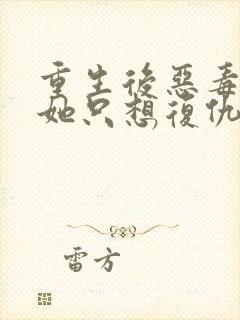 重生後惡毒
她只想復仇
雷方